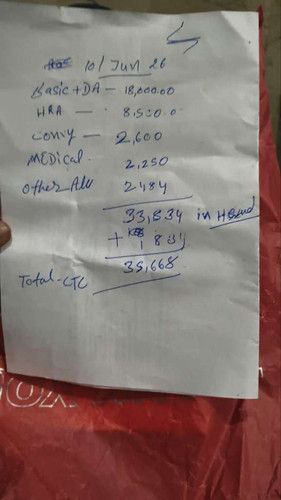 10/Jun 26
Basic+DA - 18,000.00
HRA - 8,500.0
Convy - 2,600
MEDICAL. 2,250
Other All 2484
33,834 in Hand
+ 1834
Total-CTC 35,668